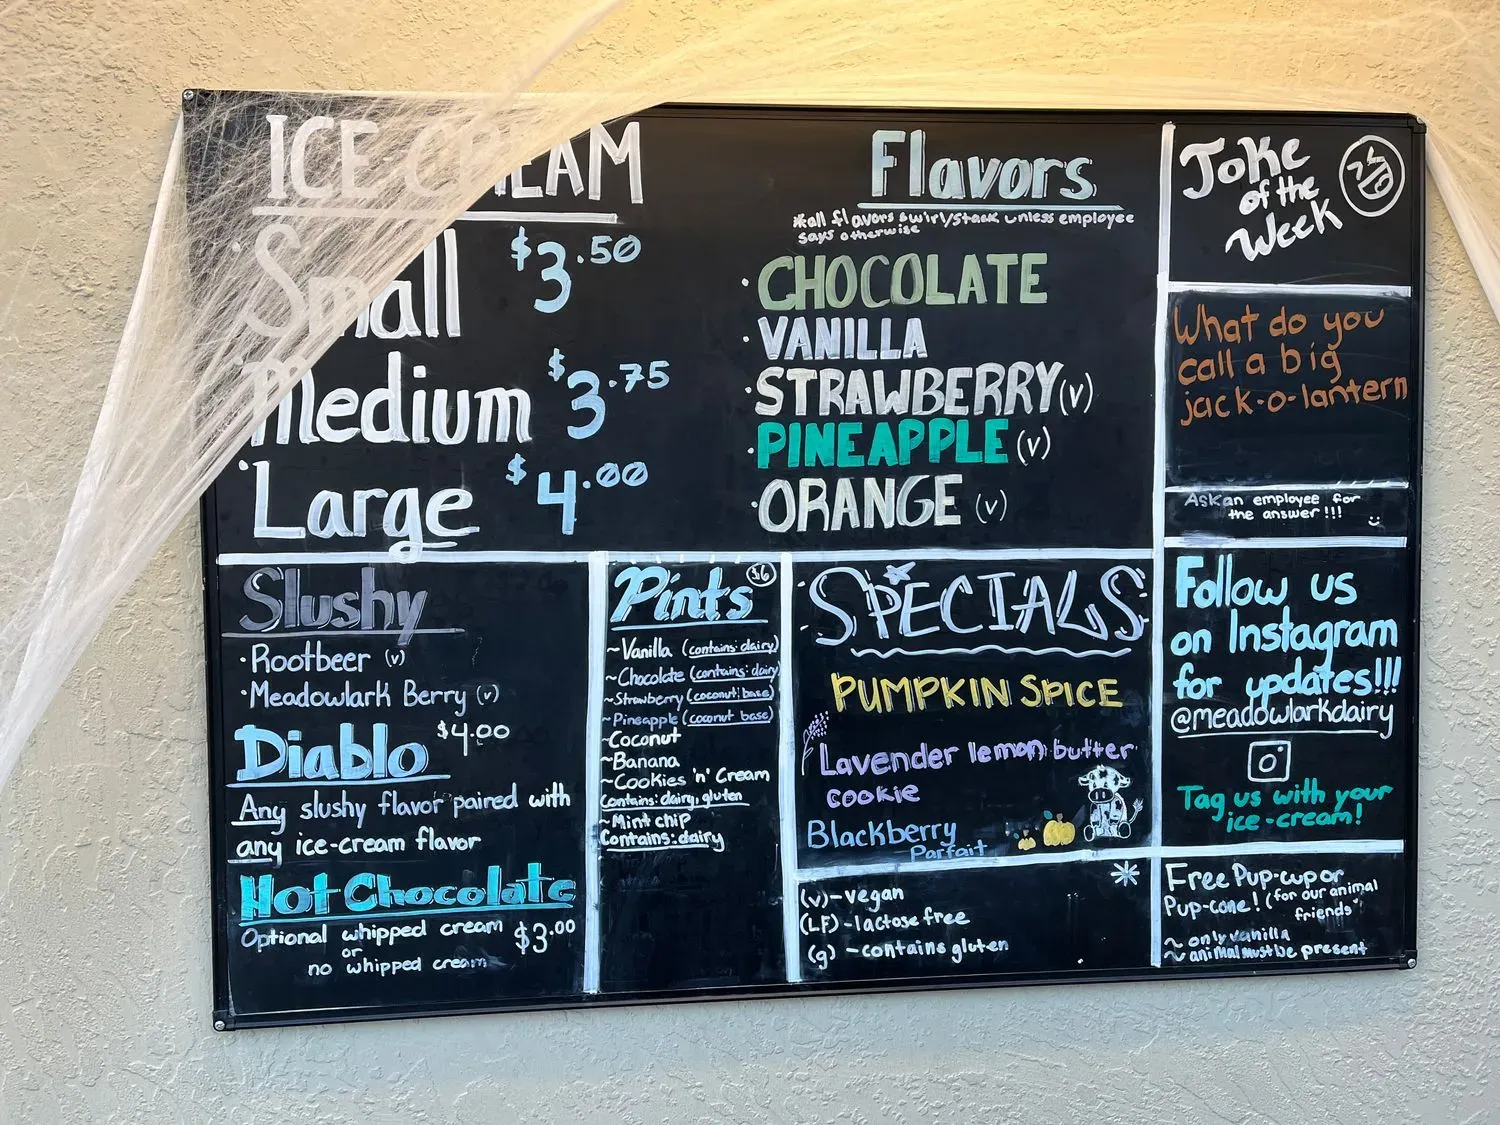 ICE CREAM
Small $3.50
Medium $3.75
Large $4.00
Flavors
*all flavors swirl/stack unless employee
says otherwise
· CHOCOLATE
· VANILLA
· STRAWBERRY (v)
· PINEAPPLE (v)
· ORANGE (v)
Joke
of the
Week
What do you
call a big
jack-o-lantern
Ask an employee for
the answer!!!
Slushy
· Rootbeer (v)
· Meadowlark Berry (v)
Diablo $4.00
Any slushy flavor paired with
any ice-cream flavor
Hot Chocolate
Optional whipped cream $3.00
or
no whipped cream
Pints $6
~Vanilla (contains: dairy)
~Chocolate (contains: dairy)
~Strawberry (coconut base)
~Pineapple (coconut base)
~Coconut
~Banana
~Cookies 'n' Cream
Contains: dairy, gluten
~Mint chip
Contains: dairy
SPECIALS
PUMPKIN SPICE
Lavender lemon butter
cookie
Blackberry
Parfait
(v) - vegan
(LF) - lactose free
(g) - contains gluten
Follow us
on Instagram
for updates!!!
@meadowlarkdairy
Tag us with your
ice-cream!
Free Pup-cup or
Pup-cone! (for our animal
friends)
~ only vanilla
~ animal must be present